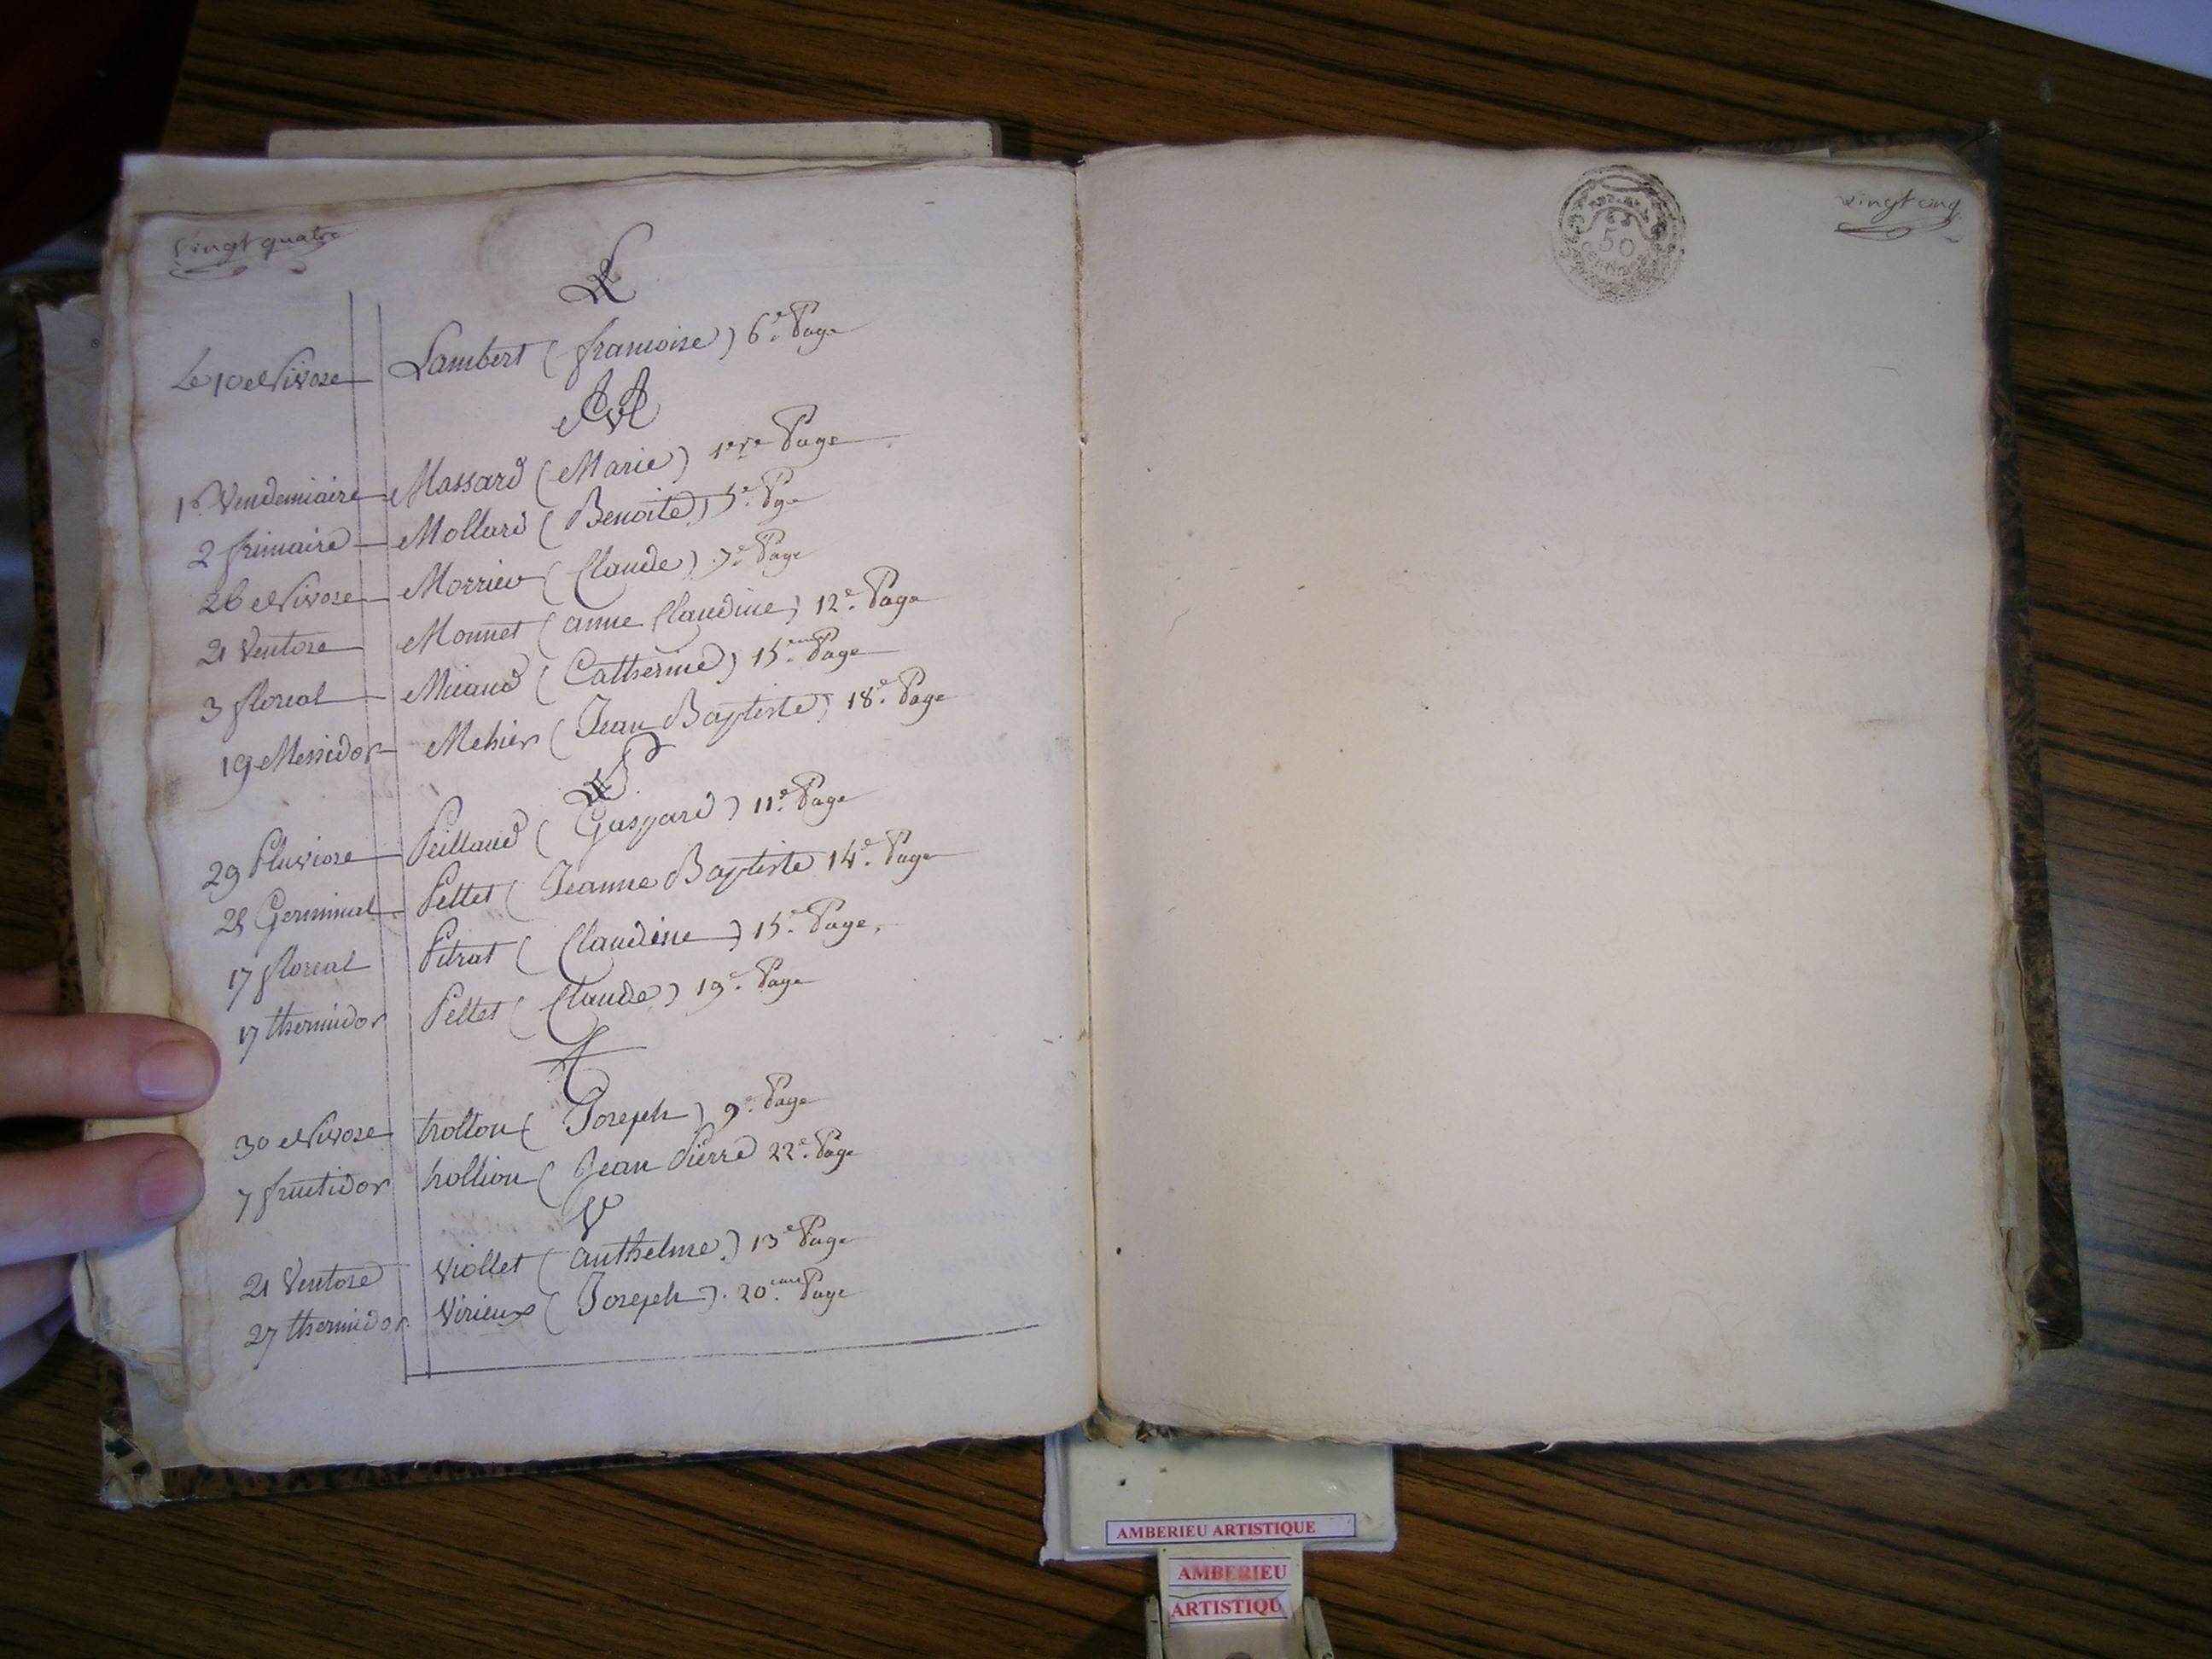 Vingt quatre
L
Le 10 Nivose Lambert (francoise) 6e. Page
M
1er. Vendemiaire Massard (Marie) 1ere Page
2 frimaire Mollard (Benoite) 5e. Pge
26 Nivose Morrieu (Claude) 7e Page
21 Ventose Monnet (anne Claudine) 12e. Page
3 floreal Micaud (Catherine) 15eme Page
19 Messidor Mehier (Jean Baptiste) 18e. Page
P
29 Pluviose Peillaud (Gaspard) 11e. Page
28 Germinal Pellet (Jeanne Baptiste 14e. Page
17 floreal Pitrat (Claudine) 15e. Page,
17 thermidor Pellet (Claude) 19e. Page
t
30 Nivose trollion (Joseph) 9e. Page
7 fructidor trollion (Jean Pierre 22e. Page
V
21 Ventose Viollet (anthelme) 13e Page
27 thermidor Virieux (Joseph). 20eme Page
50
Centimes
vingt cinq
AMBERIEU ARTISTIQUE
AMBERIEU
ARTISTIQU